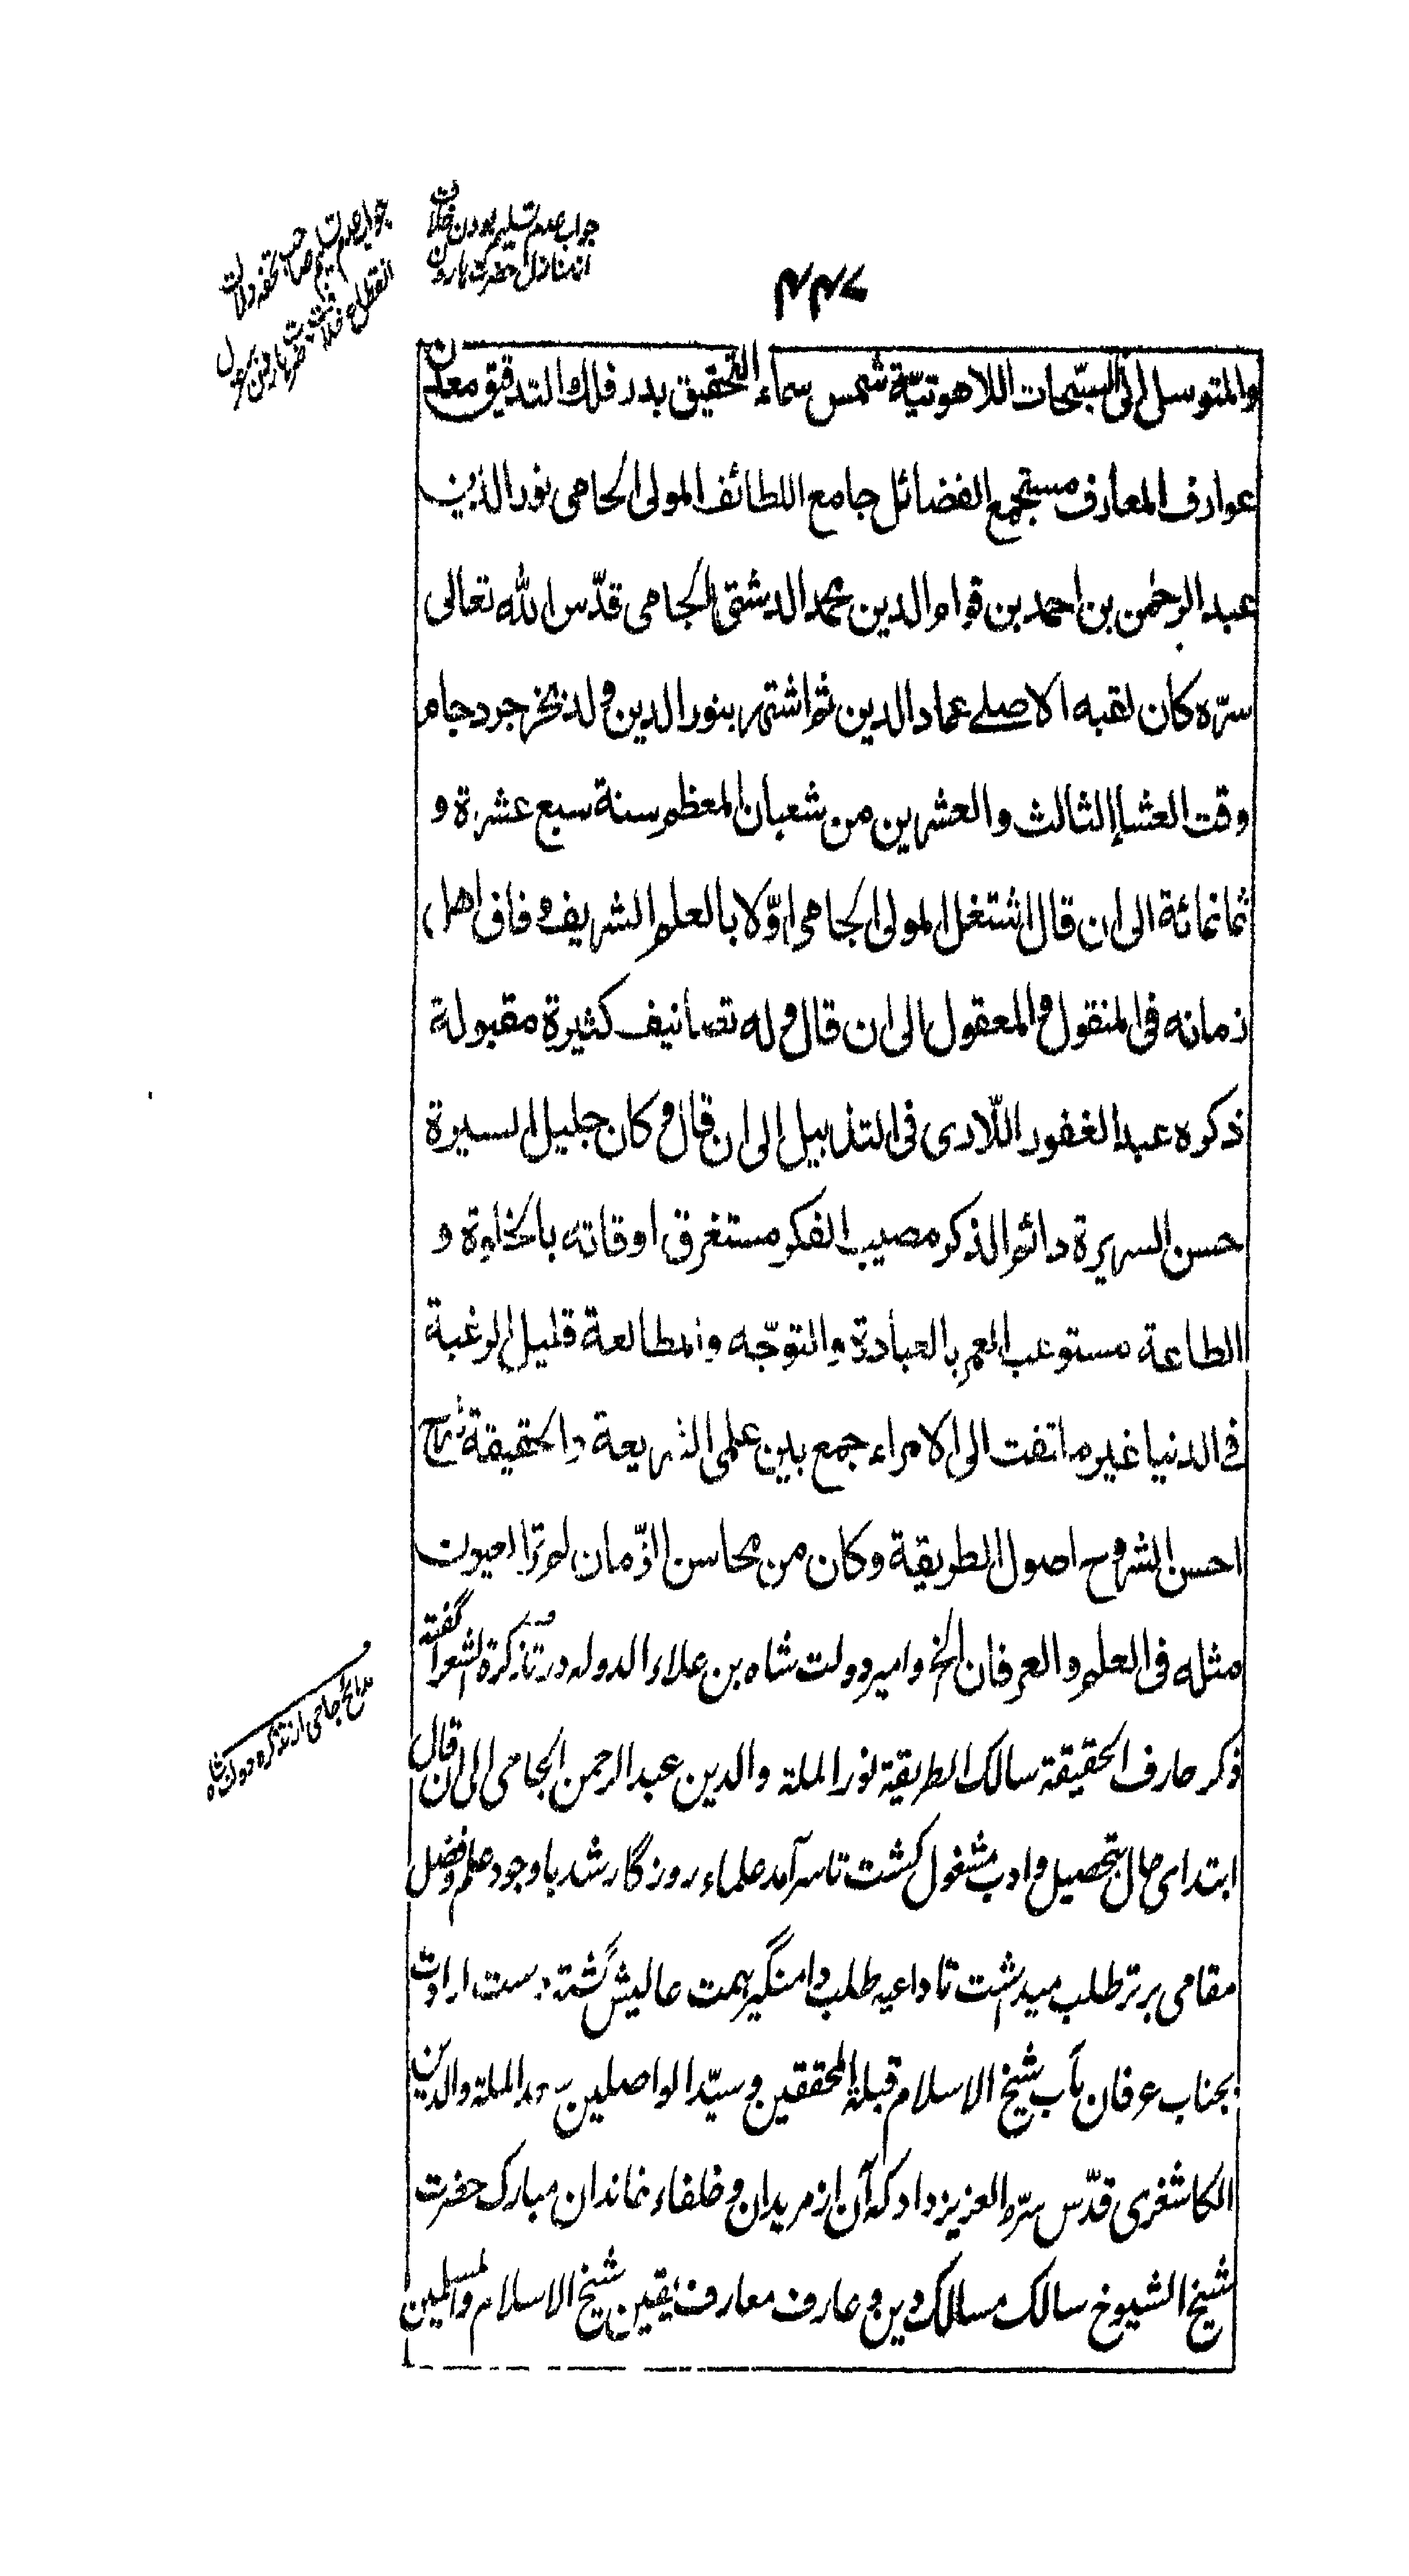 جواب عدم تسلیم بودن خلافت
از منازل حضرت هارون
جواب عدم تسلیم صاحب تحفه دلالت
انقطاع خلافت
۴۴۷
والمتوسل الی السبّحات اللاهوتیّة شمس سماء التحقیق بدر فلك التدقیق معدن
عوارف المعارف مستجمع الفضائل جامع اللطائف المولی الجامی نور الدین
عبد الرحمٰن بن احمد بن قوام الدین محمد الدشتی الجامی قدّس الله تعالی
سرّه كان لقبه الاصلے عماد الدین ثم اشتهر بنور الدین و لد بخرجرد جام
وقت العشاء الثالث والعشرین من شعبان المعظم سنة سبع عشرة و
ثمانمائة الی ان قال اشتغل المولی الجامی اوّلا بالعلم الشریف و فاق اهل
زمانه فی المنقول والمعقول الی ان قال وله تصانیف كثیرة مقبولة
ذكره عبد الغفور اللّاری فی التذییل الی ان قال و كان جلیل السیرة
حسن السریرة دائم الذكر مصیب الفكر مستغرق اوقاته بالخلوة و
الطاعة مستوعب العمر بالعبادة والتوجّه والمطالعة قلیل الرغبة
فی الدنیا غیر ملتفت الی الامراء جمع بین علمی الشریعة والحقیقة شرح
احسن الشروح اصول الطریقة وكان من محاسن الزّمان لم ترا العیون
مثله فی العلم والعرفان الخ وامیر دولت شاه بن علاء الدوله در تذكرة الشعرا گفته
ذكر عارف الحقیقة سالك الطریقة نور الملة والدین عبد الرحمن الجامی الی ان قال
ابتدای حال بتحصیل و ادب مشغول گشت تا سرآمد علماء روزگار شد با وجود علم و فضل
مقامی برتر طلب میداشت تا داعیه طلب دامنگیر همت عالیش گشته دست ارادت
بجناب عرفان مآب شیخ الاسلام قبلة المحققین و سیّد الواصلین سعد الملة والدین
الكاشغری قدّس سرّه العزیز داد كه آن از مریدان و خلفاء خاندان مبارك حضرت
شیخ الشیوخ سالك مسالك دین و عارف معارف یقین شیخ الاسلام والمسلمین
مدائح جامی از تذكره دولت شاه